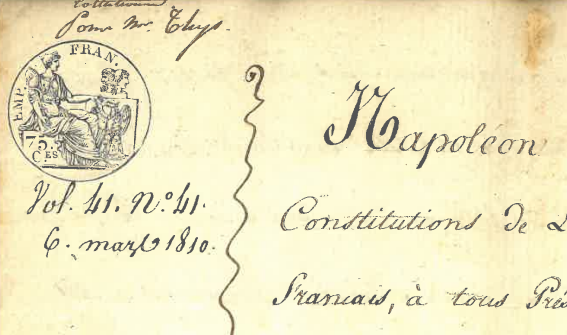 Pour Mr. Thys.
EMP. FRAN.
75 CES
Vol. 41. N.º 41.
6. mars 1810.
Napoléon
Constitutions de L
Français, à tous Prés